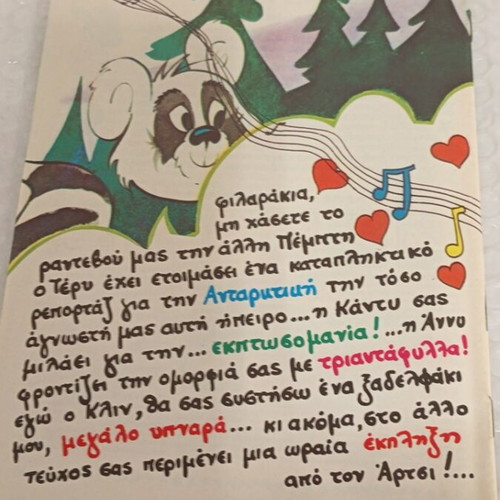 φιλαράκια,
μη χάσετε το
ραντεβού μας την άλλη Πέμπτη
ο Τέρυ έχει ετοιμάσει ένα καταπληκτικό
ρεπορτάζ για την Ανταρκτική την τόσο
άγνωστή μας αυτή ήπειρο...η Κάντυ σας
μιλάει για την... εκπτωσομανία!...η Άννυ
φροντίζει την ομορφιά σας με τριαντάφυλλα!
εγώ ο Κλιν, θα σας συστήσω ένα ξαδελφάκι
μου, μεγάλο υπναρά... κι ακόμα, στο άλλο
τεύχος σας περιμένει μια ωραία έκπληξη
από τον Άρτσι!...